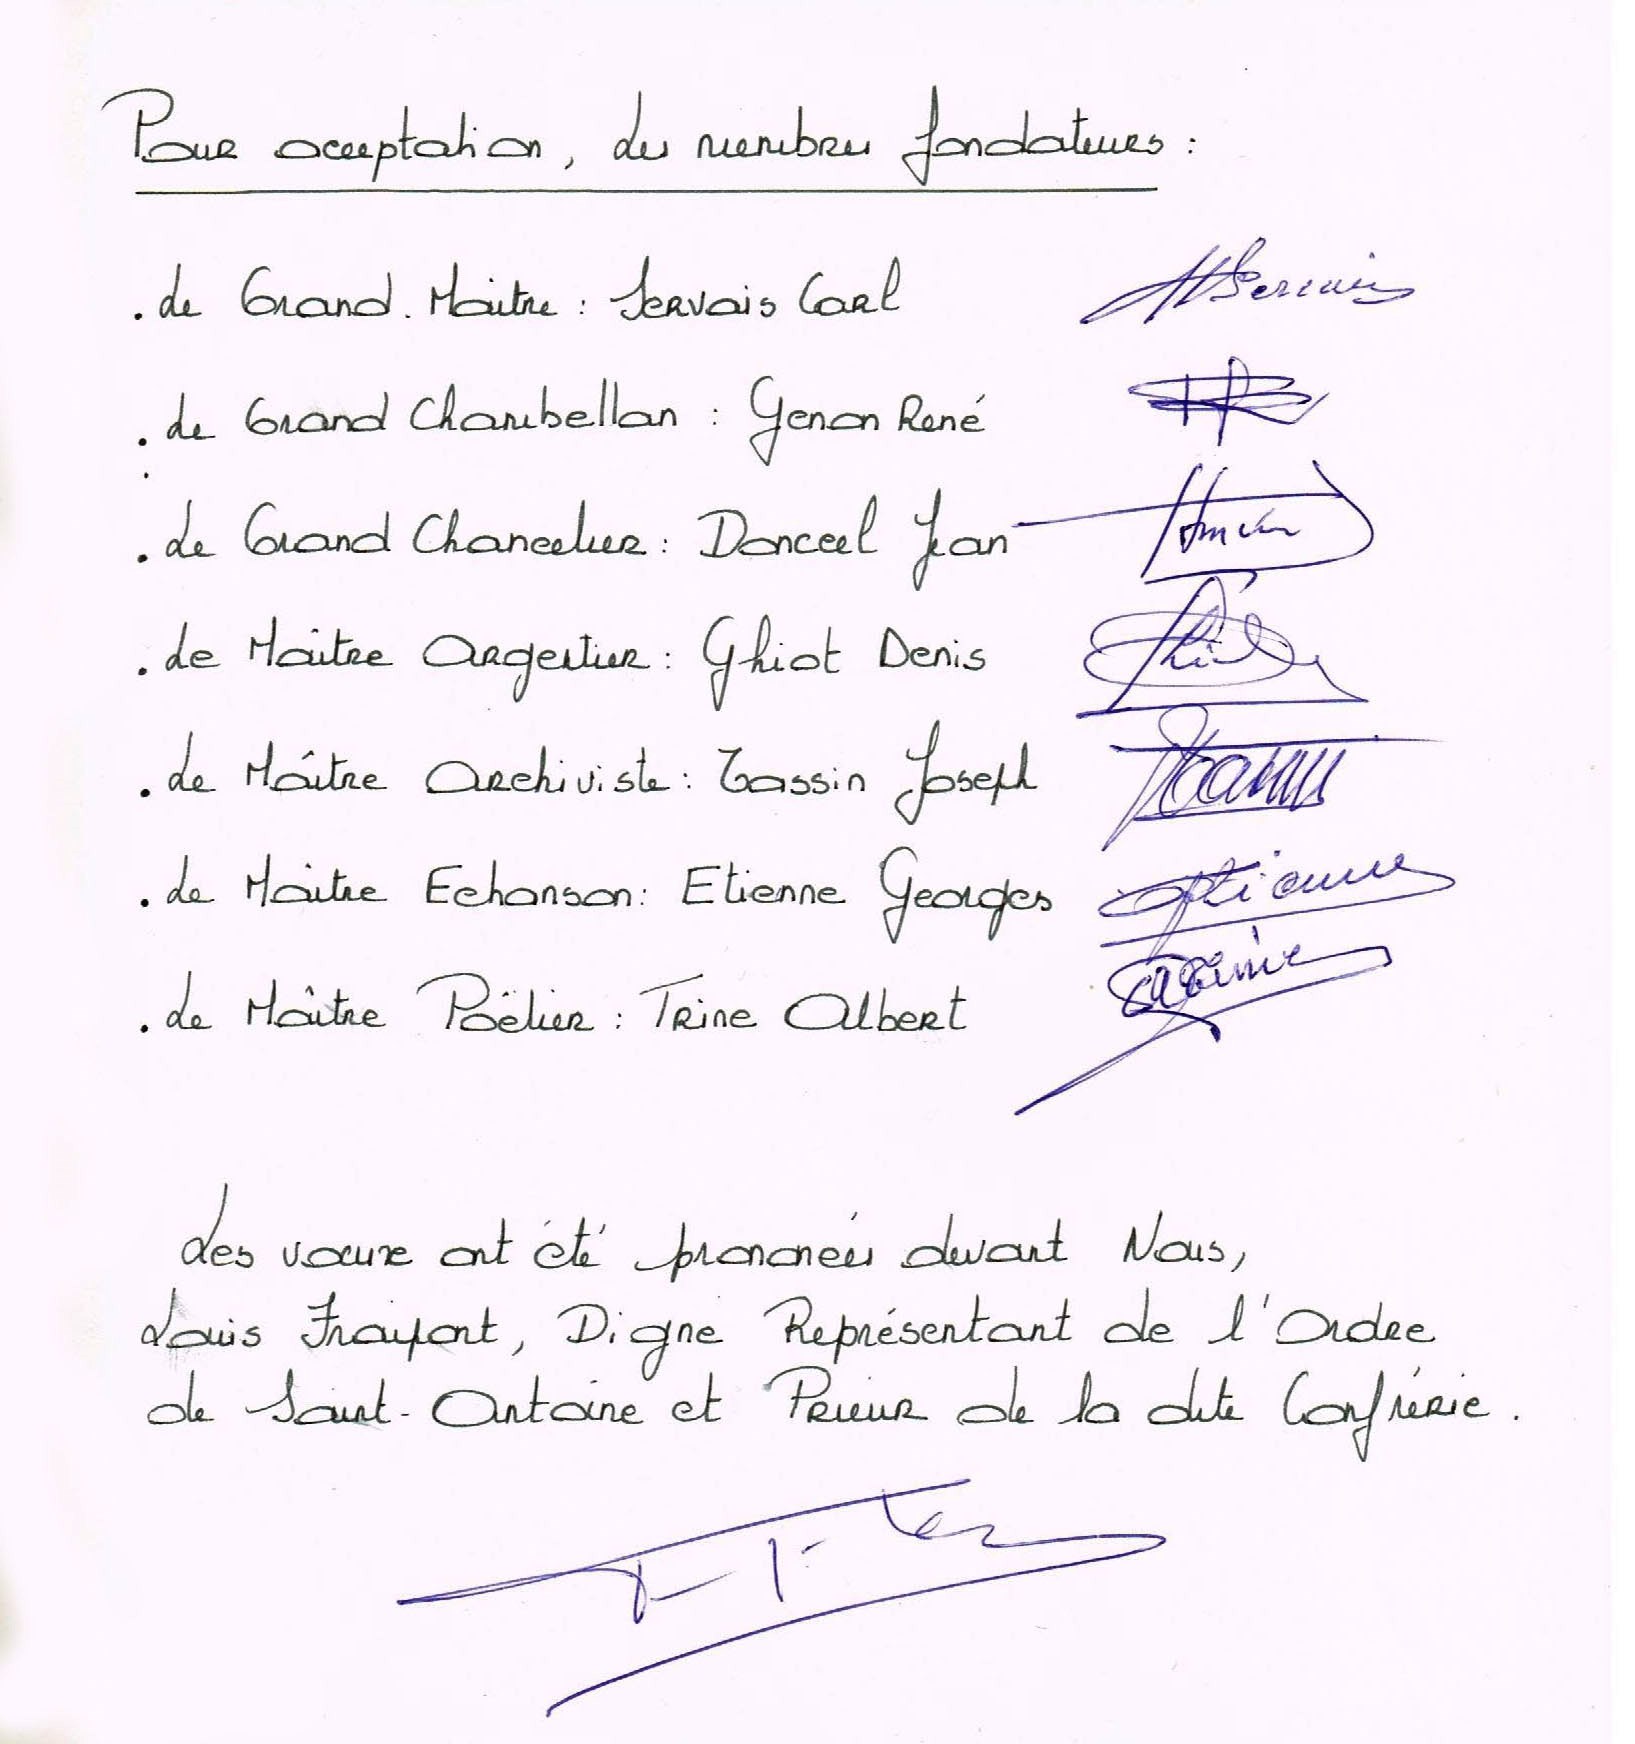 Pour acceptation, les membres fondateurs :
. Le Grand.Maître : Servais Carl
. Le Grand Chambellan : Genon René
. Le Grand Chancelier : Donceel Jean
. Le Maître Argentier : Ghiot Denis
. Le Maître Archiviste : Tassin Joseph
. Le Maître Echanson : Etienne Georges
. Le Maître Poëlier : Trine Albert
Les voeux ont été prononcés devant Nous,
Louis Fraipont, Digne Représentant de l'Ordre
de Saint-Antoine et Prieur de la dite Confrérie.